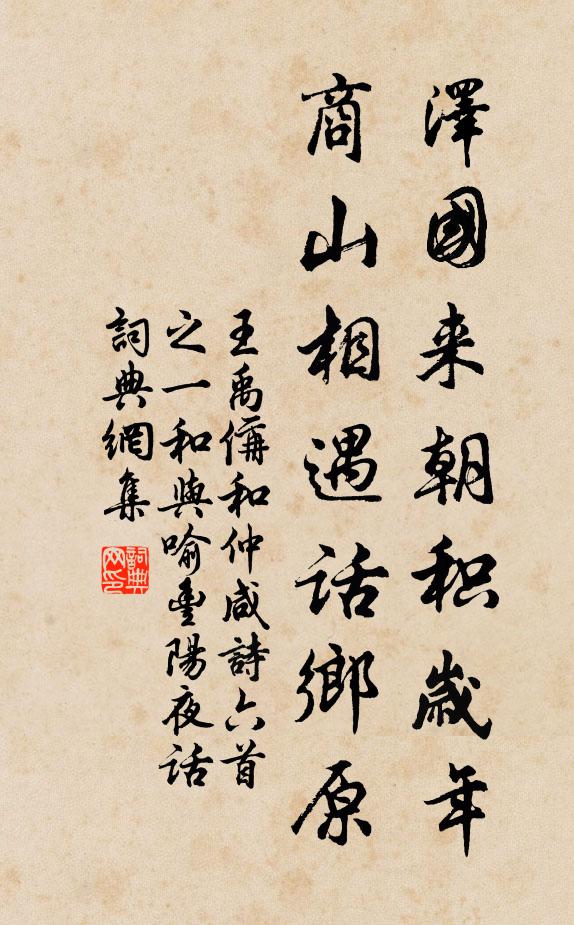 澤國来朝积歲年
商山相遇話鄉原
王禹偁和仲咸詩六首
之一和與喻豐陽夜話
詞典網集
詞典
网印